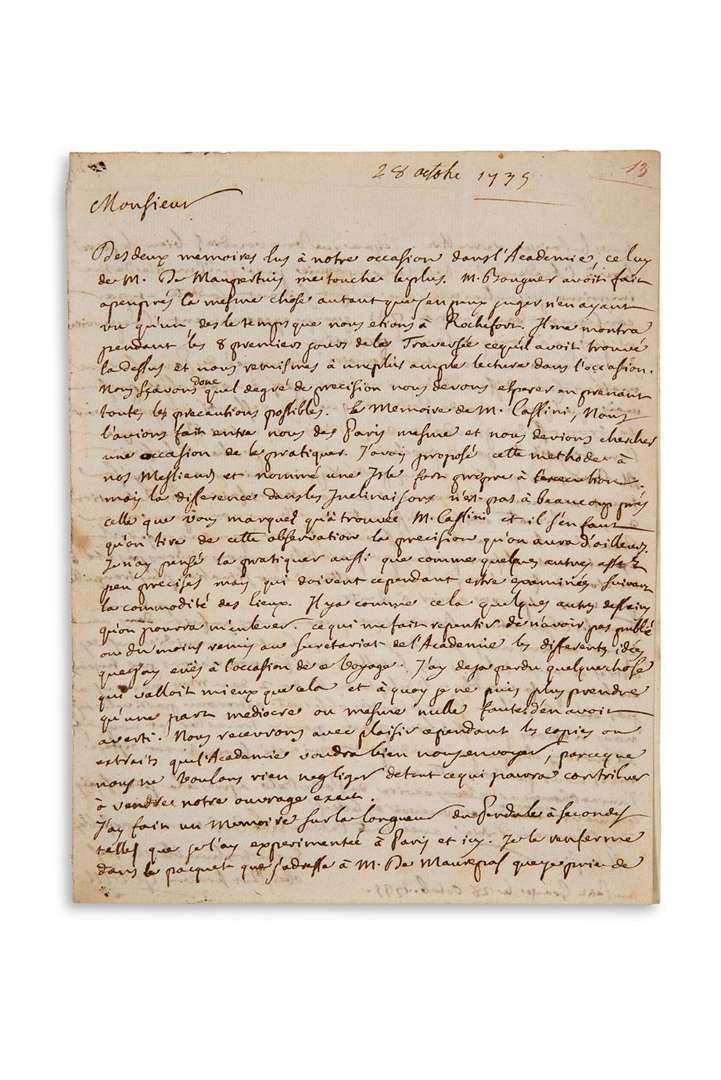 28 octobre 1735
13
Monsieur
Des deux memoires lus à notre occasion dans l'Academie, celuy
de M. De Maupertuis me touche le plus. M. Bouguer avoit fait
apeuprès la mesme chose autant que j'en peux juger n'en ayant
vu qu'un, des le temps que nous etions à Rochefort. Il me montra
pendant les 8 premiers jours de la Traversée ce qu'il avoit trouvé
la dessus et nous remismes à une plus ample lecture dans l'occasion.
Nous sçavons donc quel degré de precision nous devons esperer en prenant
toutes les precautions possibles. Le Memoire de M. Cassini, Nous
l'avions fait entre nous des Paris mesme et nous devions chercher
une occasion de le pratiquer. J'avois proposé cette methode à
nos Messieurs et nommé une Isle fort propre à l'execution
mais la difference dans les Inclinaisons n'est pas à beaucoup près
celle que vous marquez qu'a trouvée M. Cassini et il s'en faut
qu'on tire de cette observation la precision qu'on aura d'ailleurs.
Je n'ay pensé la pratiquer aussi que comme quelques autres assez
peu precises mais qui doivent cependant estre examinées suivant
la commodité des lieux. Il y a comme cela quelques autres desseins
qu'on pourra m'enlever. ce qui me fait repentir de n'avoir pas publié
ou du moins remis au Secretariat de l'Academie les differentes idées
que j'ay eües à l'occasion de ce Voyage. J'ay deja perdu quelque chose
qui valloit mieux que cela et à quoy je ne puis plus prendre
qu'une part mediocre ou mesme nulle faute d'en avoir
averti. Nous recevrons avec plaisir cependant les copies ou
extraits que l'Academie voudra bien nous envoyer, parceque
nous ne voulons rien negliger de tout ce qui pourra contribuer
à rendre notre ouvrage exact.
J'ay fait un Memoire sur la longueur du Pendule à secondes
telle que je l'ay experimentée à Paris et icy. Je le renferme
dans le pacquet que j'adresse à M. De Maurepas que je prie de